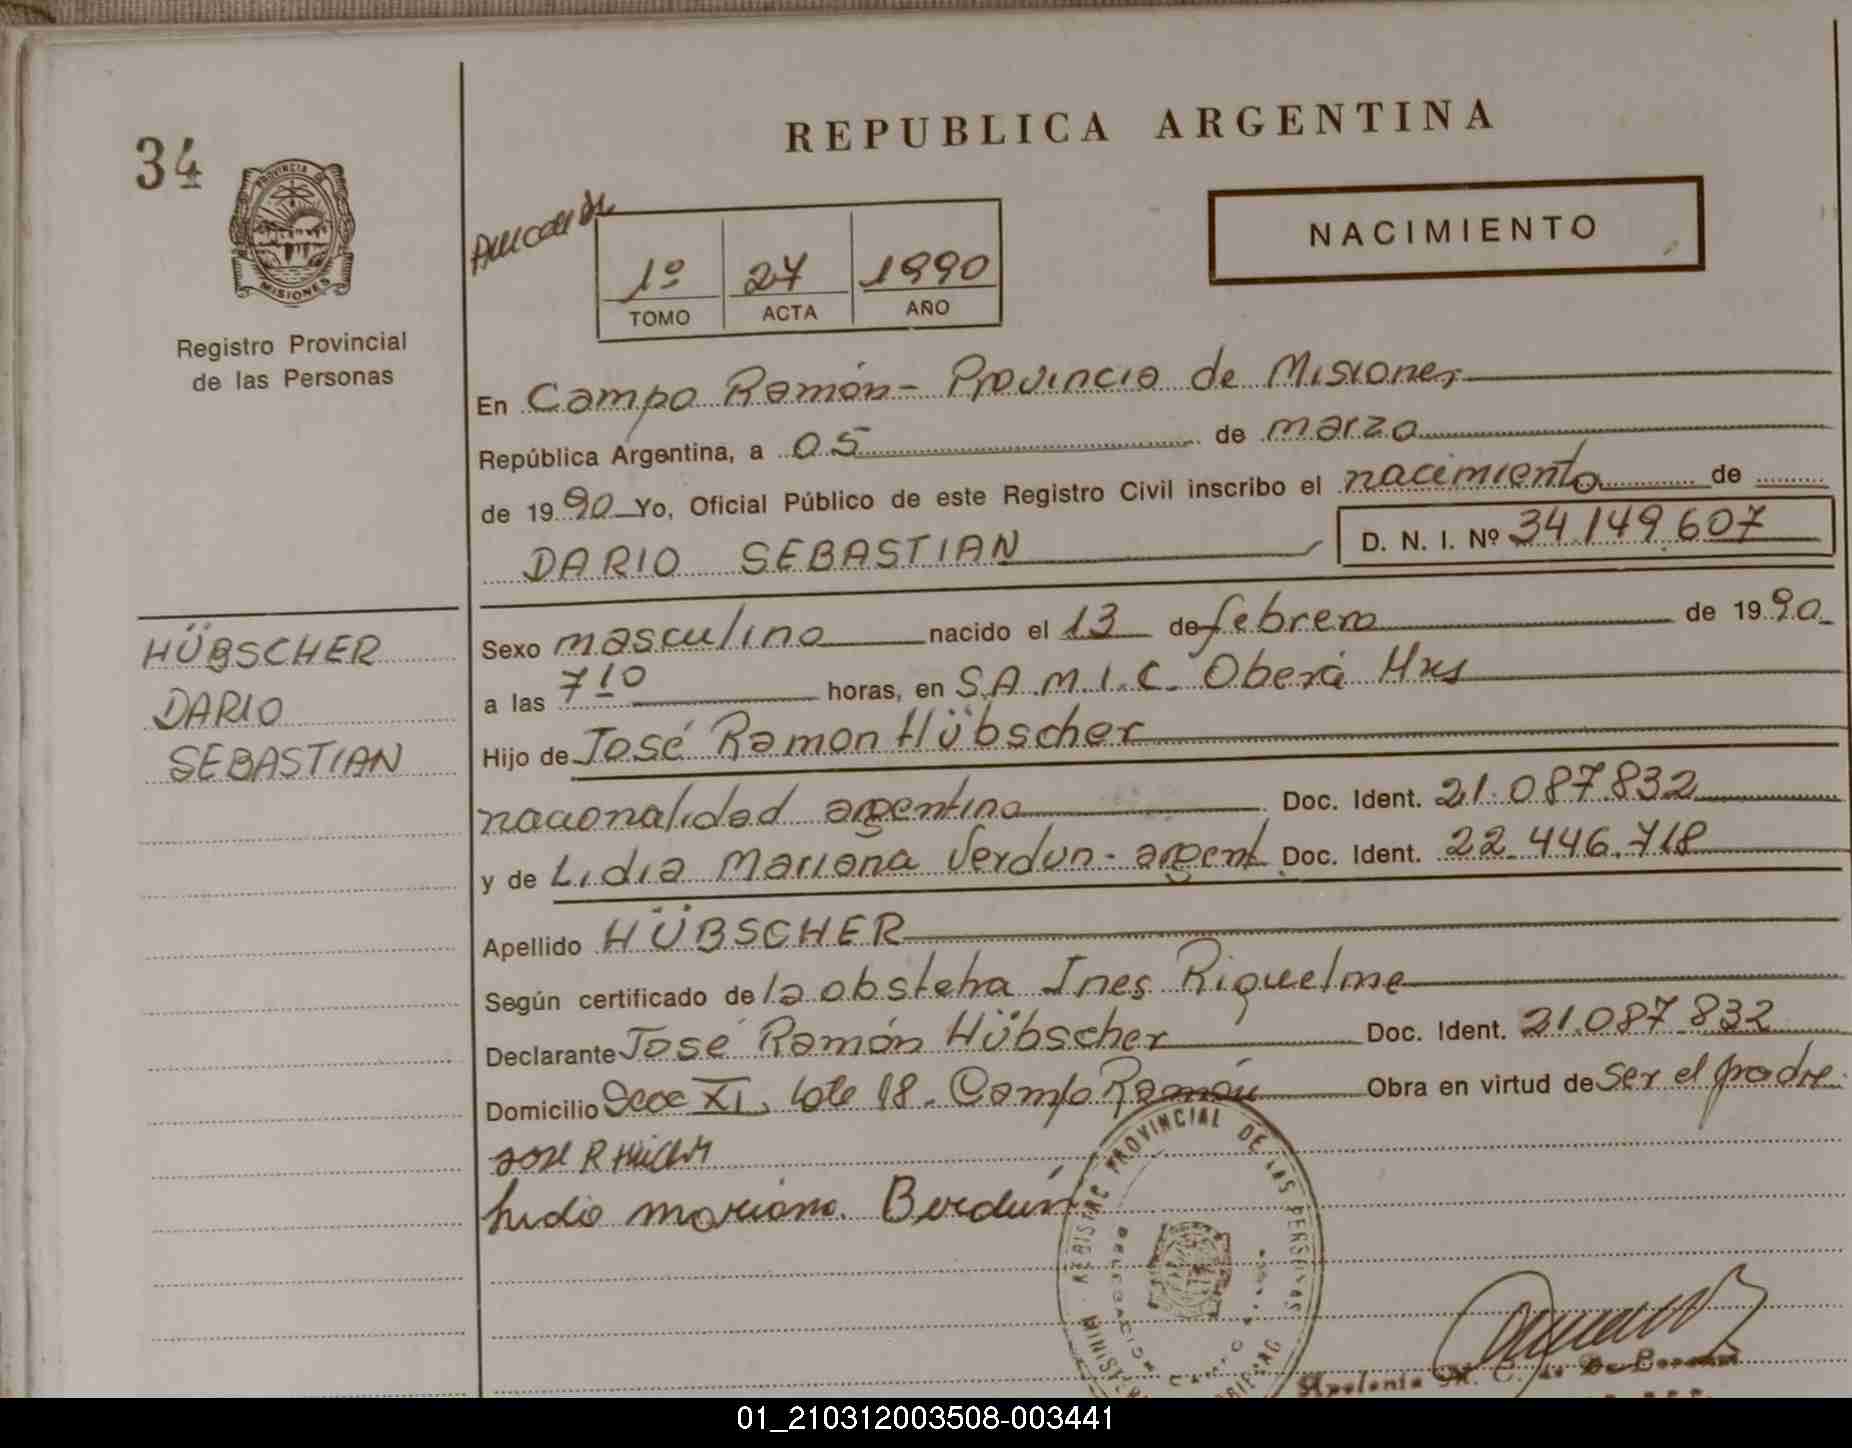 REPUBLICA ARGENTINA
34
PROVINCIA DE
MISIONES
NACIMIENTO
1º 27 1990
TOMO ACTA AÑO
Registro Provincial
de las Personas
En Campo Ramón - Provincia de Misiones
República Argentina, a 05 de marzo
de 1990 Yo, Oficial Público de este Registro Civil inscribo el nacimiento de
DARIO SEBASTIAN D. N. I. Nº 34.149.607
HÜBSCHER
DARIO
SEBASTIAN
Sexo masculino nacido el 13 de febrero de 1990
a las 710 horas, en S.A.M.I.C. Oberá Mns
Hijo de José Ramon Hübscher
nacionalidad argentina Doc. Ident. 21.087.832
y de Lidia Mariana Verdun - argent Doc. Ident. 22.446.718
Apellido HÜBSCHER
Según certificado de la obstetra Ines Riquelme
Declarante José Ramón Hübscher Doc. Ident. 21.087.832
Domicilio Secc XI, lote 18. Campo Ramón Obra en virtud de ser el padre
Jose R
Lidia mariana. Berdún
REGISTRO PROVINCIAL DE LAS PERSONAS
DELEGACION
Apolonia M. C. de De
01_210312003508-003441